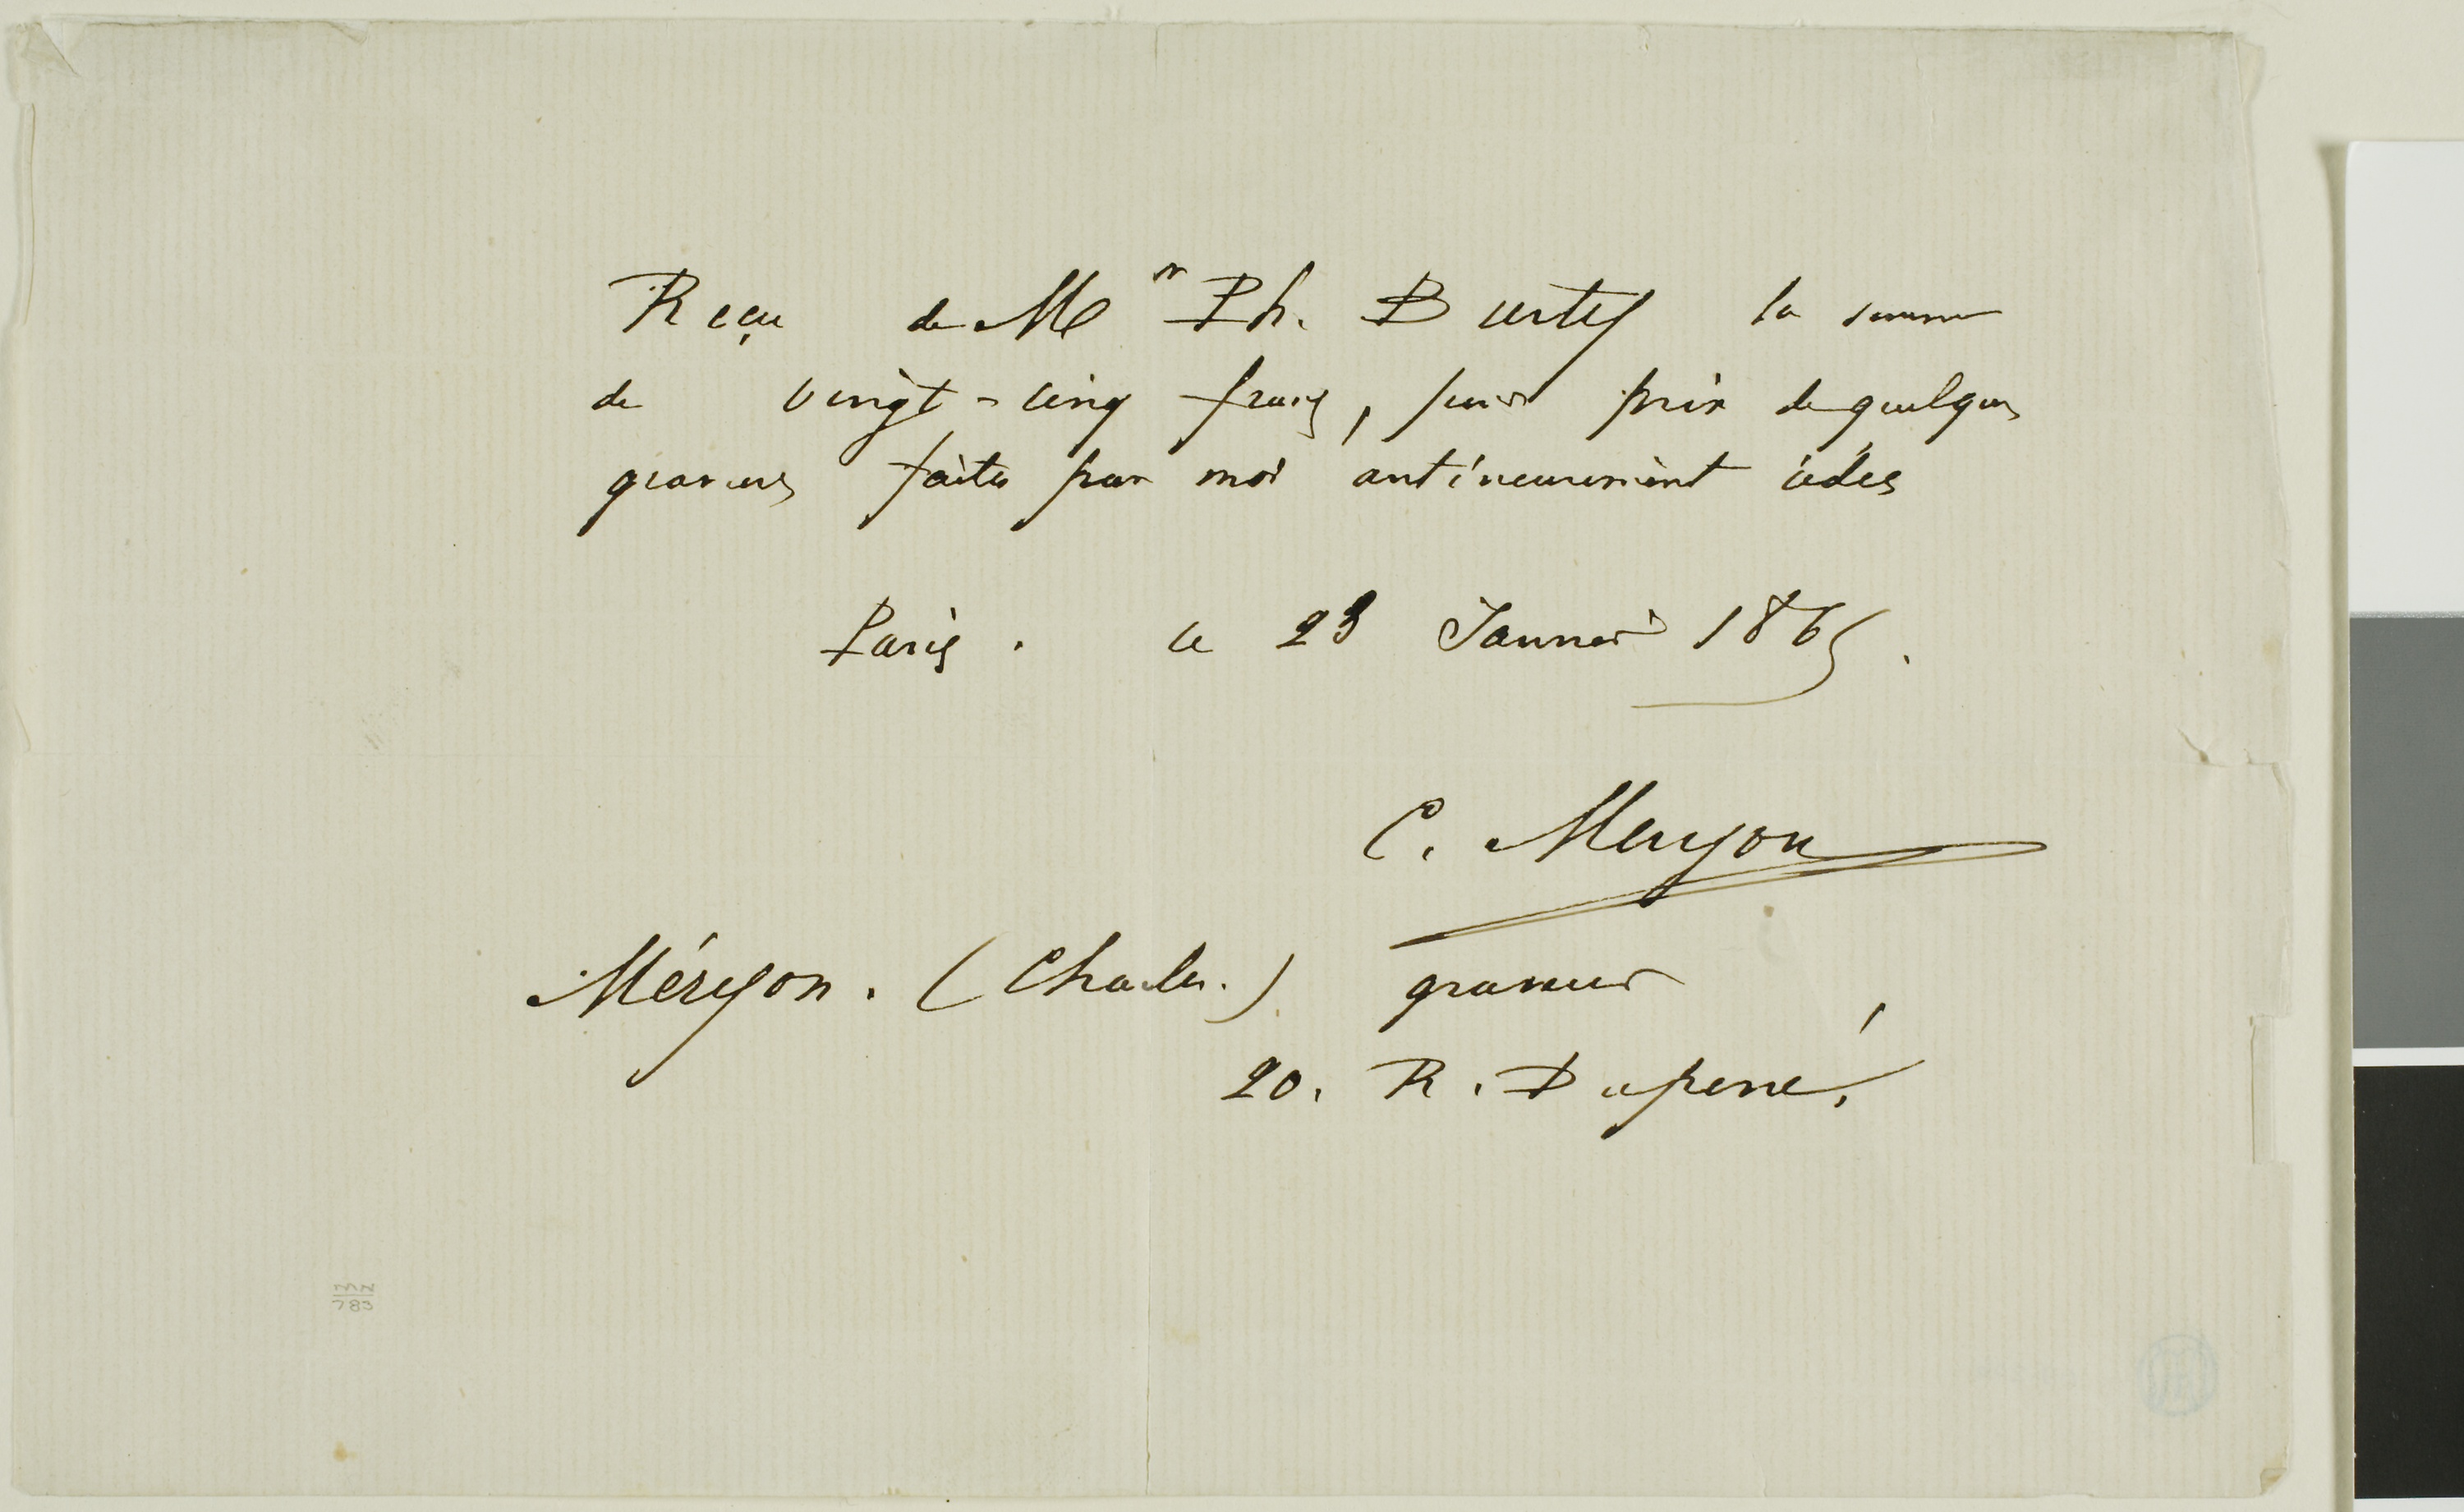 Reçu de Mr Ph. Burty la somme
de vingt-cinq francs, pour prix de quelques
gravures faites par moi antérieurement cédées
Paris. le 23 Janvier 1865.
C. Meryon
Méryon. (Charles.) graveur
20. R. Duperré.
MN
783